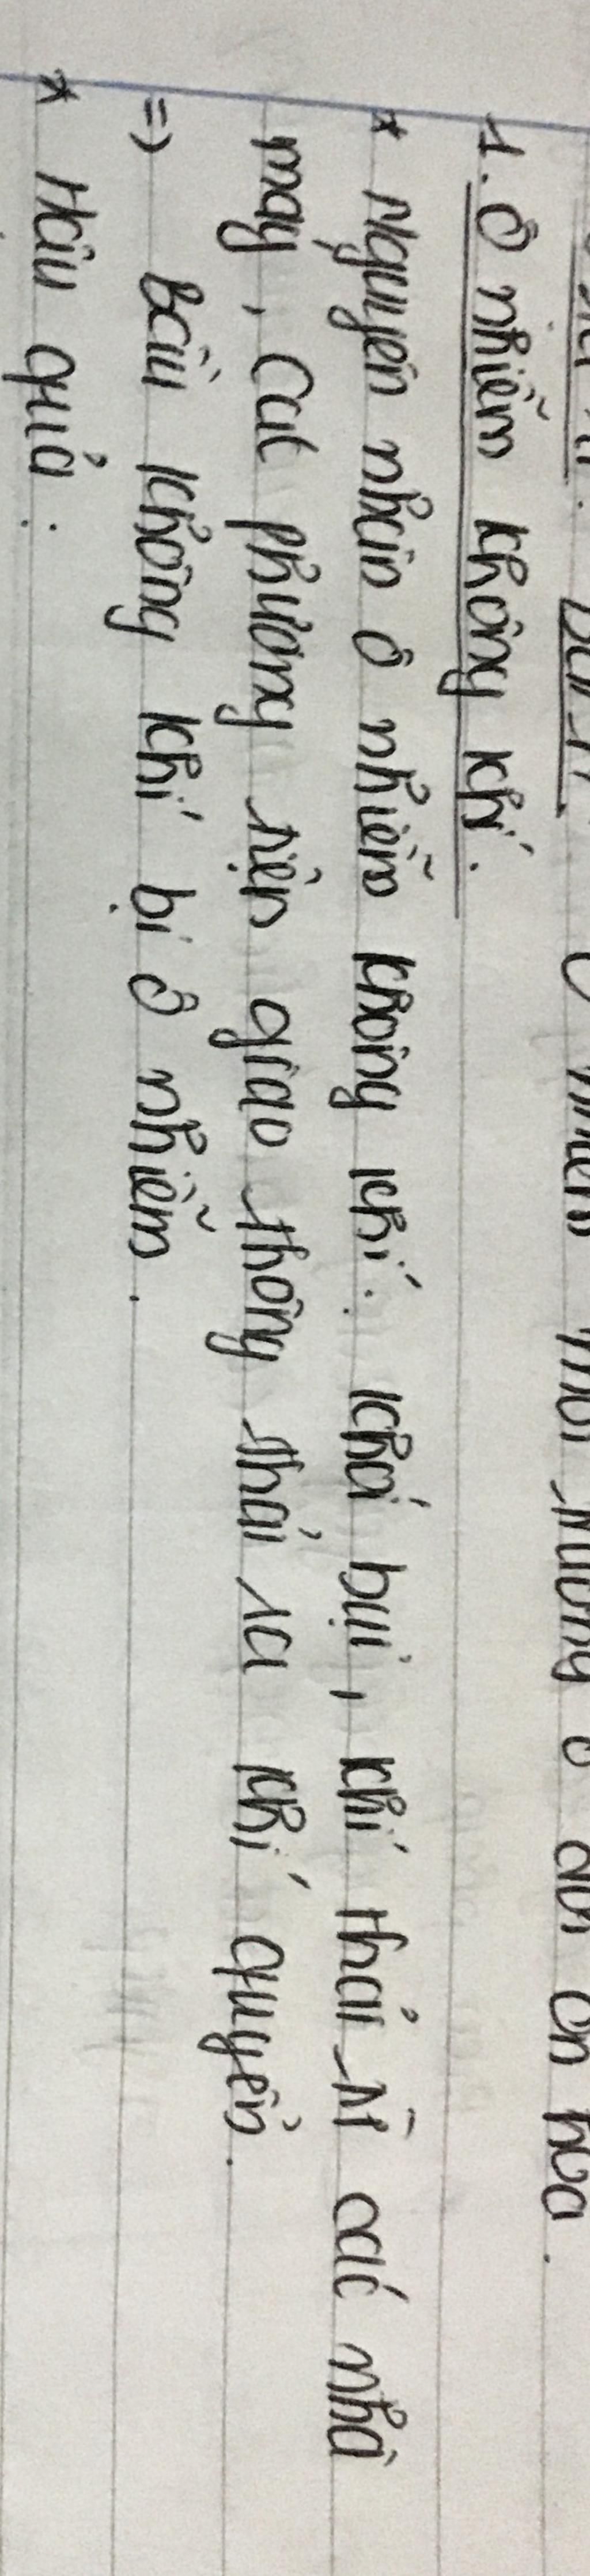 ô nhiễm môi trường ở đới ôn hòa.
1. Ô nhiễm không khí.
* Nguyên nhân ô nhiễm không khí: khói bụi, khí thải từ các nhà
máy, các phương tiện giao thông thải ra khí quyển.
=> Bầu không khí bị ô nhiễm.
* Hậu quả: